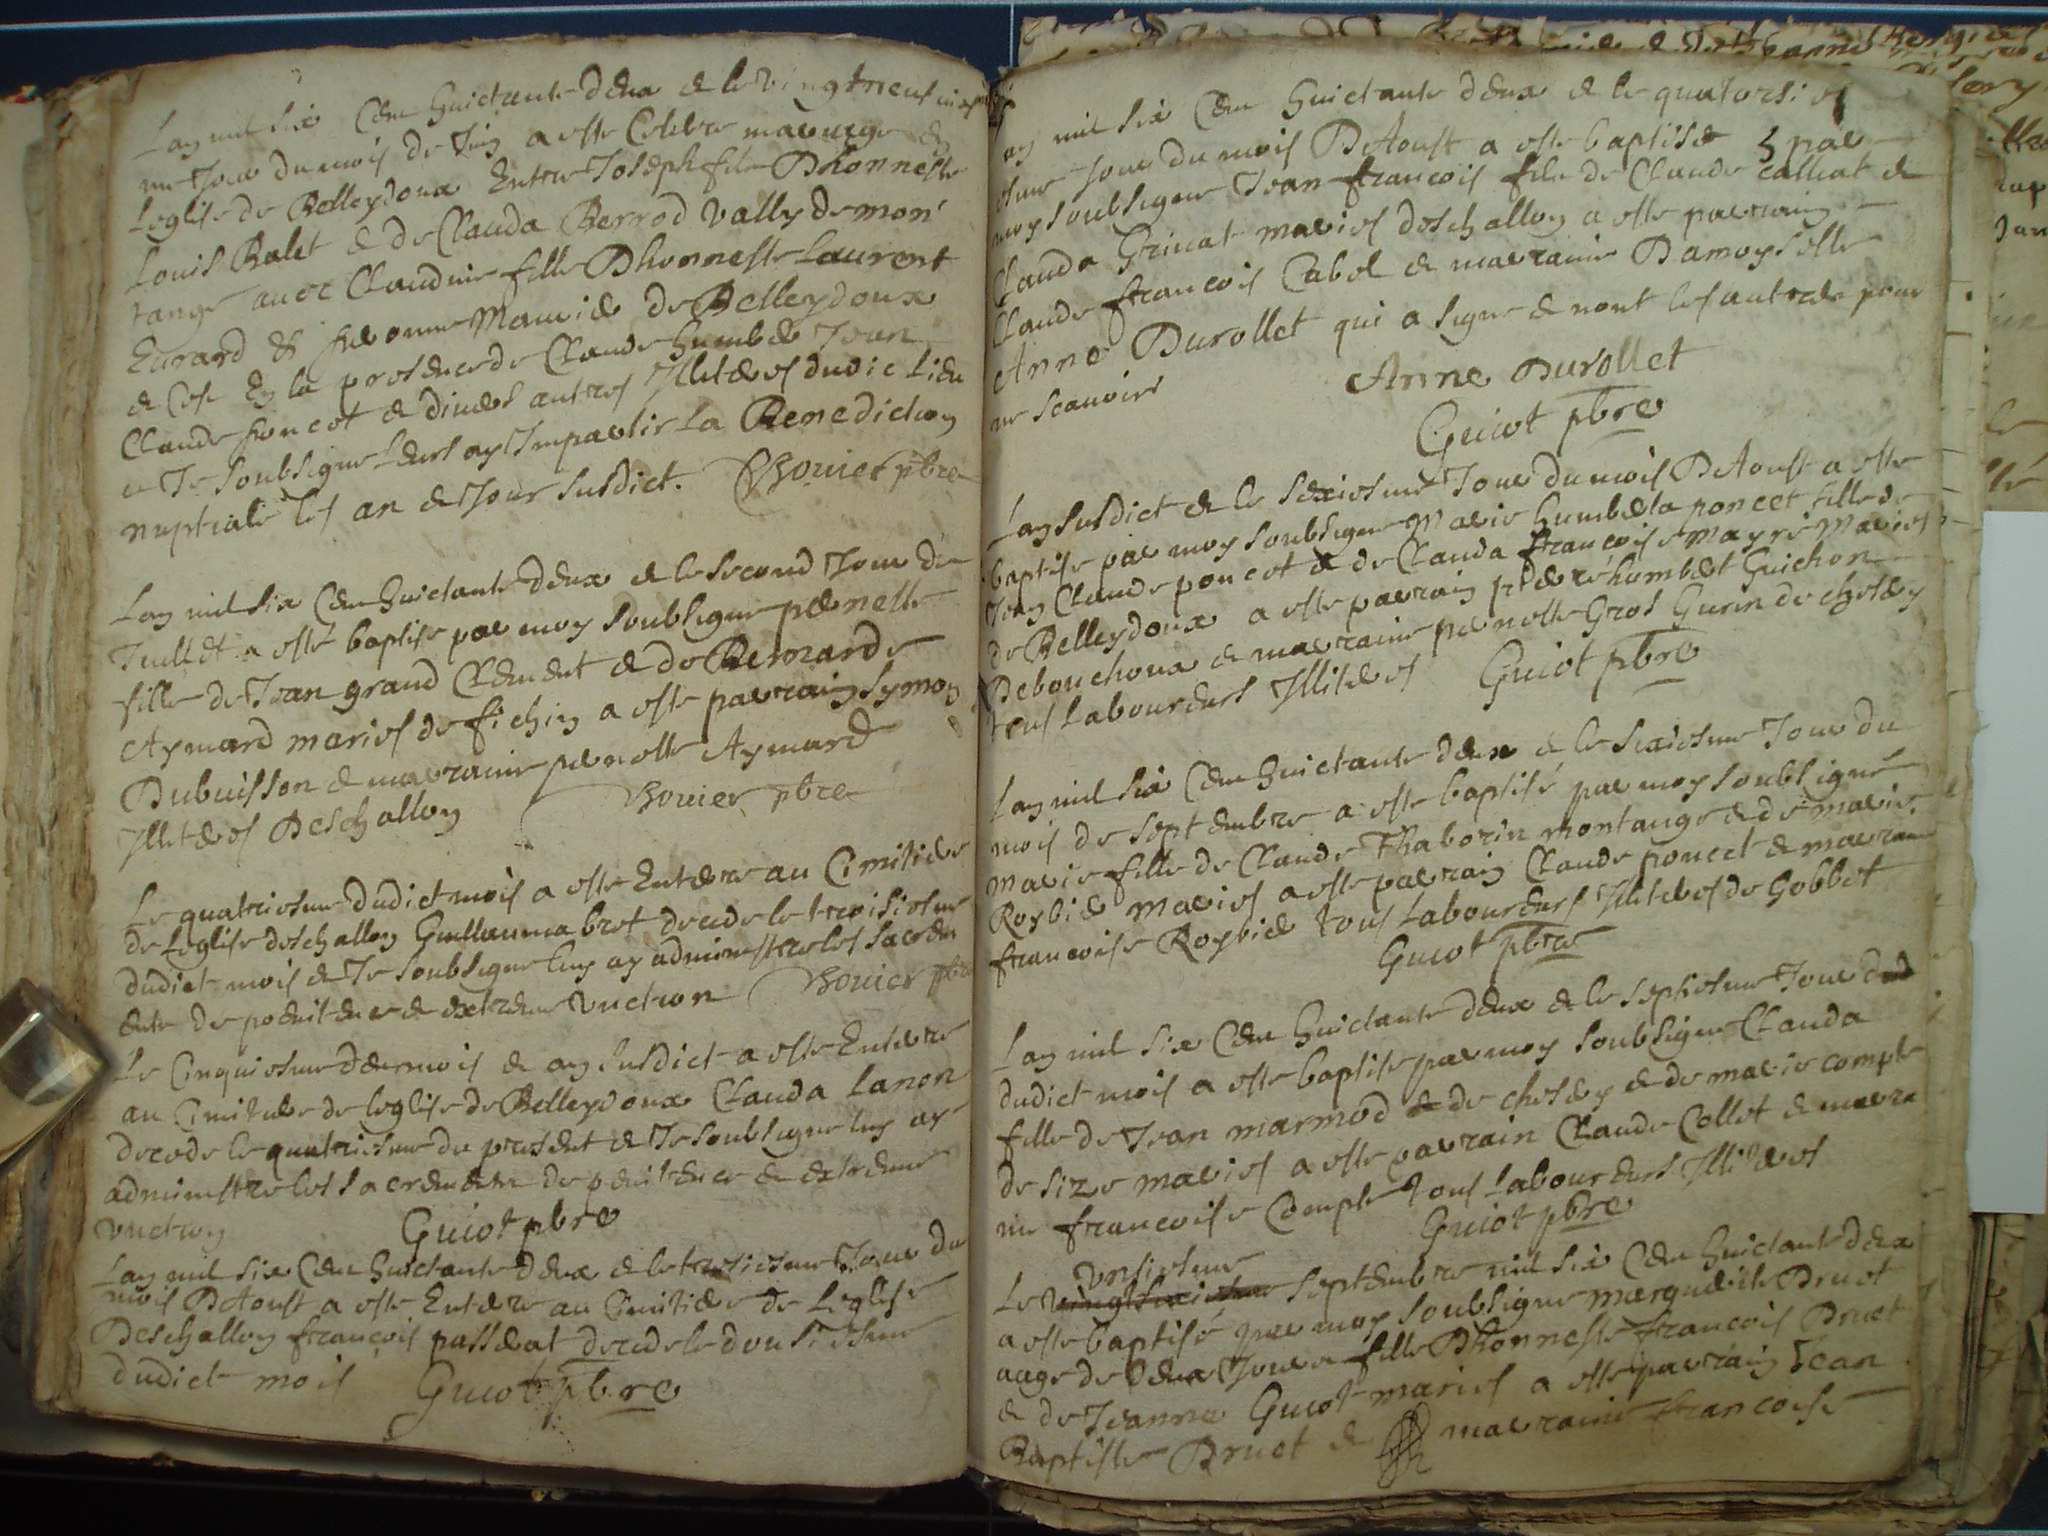 Lan mil six Cent huictante deux & le vingtneufviesme
me Jour du mois de Juin a este Celebre mariage En
Leglise de Belleydoux Entre Joseph fils Dhonneste
Louis Balet & de Clauda Berrod vally de mon
tange avec Claudine fille Dhonneste Laurent
Evrard & de Belleydoux
& Ce En la presence de Claude humbert Jean
Claude poncet & divers autres Illiteres dudict Lieu
& Je soubsigne Leurs ay Impartir La Benediction
nuptiale les an & Jour susdict. Bouvier pbre
Lan mil six Cent huictante deux & le second Jour de
Juillet a esté baptise par moy soubsigne pernette
fille de Jean grand Clement & de Bernarde
Aymard maries de fichin a este parrain Symon
Dubuisson & marraine pernette Aymard
Illiteres Deschallon Bouvier pbre
Le quatriesme dudict mois a este Enterre au Cimitiere
de Leglise deschallon Guillauma bret decede le troisiesme
dudict mois & Je soubsigne luy ay administre les sacrem
ents de penitence & extreme vnction Bouvier pbre
Le Cinquiesme du mois & an susdict a este Enterre
au Cimitiere de leglise de Belleydoux Clauda Lanon
decede le quatriesme du present & Je soubsigne luy ay
administre les sacrements de penitence & extreme
vnction Guiot pbre
Lan mil six Cent huictante deux & le treisiesme Jour du
mois DAoust a este Enterre au Cimitiere de Leglise
Deschallon françois passerat decede le dousiesme
dudict mois Guiot pbre
Lan mil six Cent huictante deux & le quatorsi es
esme Jour du mois DAoust a este baptisé par
moy soubsigne Jean françois fils de Claude Calliat &
Clauda Grinat maries deschallon a este parrain
Claude françois Cabol & marraine Damoyselle
Anne Durollet qui a signe & nont les autres pour
ne scauoir Anne Durollet
Guiot pbre
Lan susdict & le seziesme Jour du mois DAoust a este
baptise par moy soubsigne Marie humberta poncet fille de
Jean Claude poncet & de Clauda françoise mayre Maries
de Belleydoux a este parrain pierre humbert Guichon
Debouchoux & marraine pernette Gros Gurin de chesery
tous Laboureurs Illiteres Guiot pbre
Lan mil six Cent huictante deux & le sixiesme Jour du
mois de septembre a este baptisé par moy soubsigné
Marie fille de Claude Thaborin montange & de marie
Roybie Maries a este parrain Claude poncet & marraine
françoise Roybie tous Laboureurs Illiteres de Gobbet
Guiot pbre
Lan mil six Cent huictante deux & le septiesme Jour dud
dudict mois a este baptise par moy soubsigne Clauda
fille de Jean marmod de chesery & de marie compte
de size maries a este parrain Claude Collet & marra
ine françoise Compte tous Laboureurs Illiteres
Guiot pbre
vnsiesme
Le septembre mil six Cent huictante deux
a este baptisé par moy soubsigne marguerite Druet
aage de deux Jours fille Dhonneste françois Druet
& de Jeanne Guiot maries a este parrain Jean
Baptiste Druet & marraine francoise